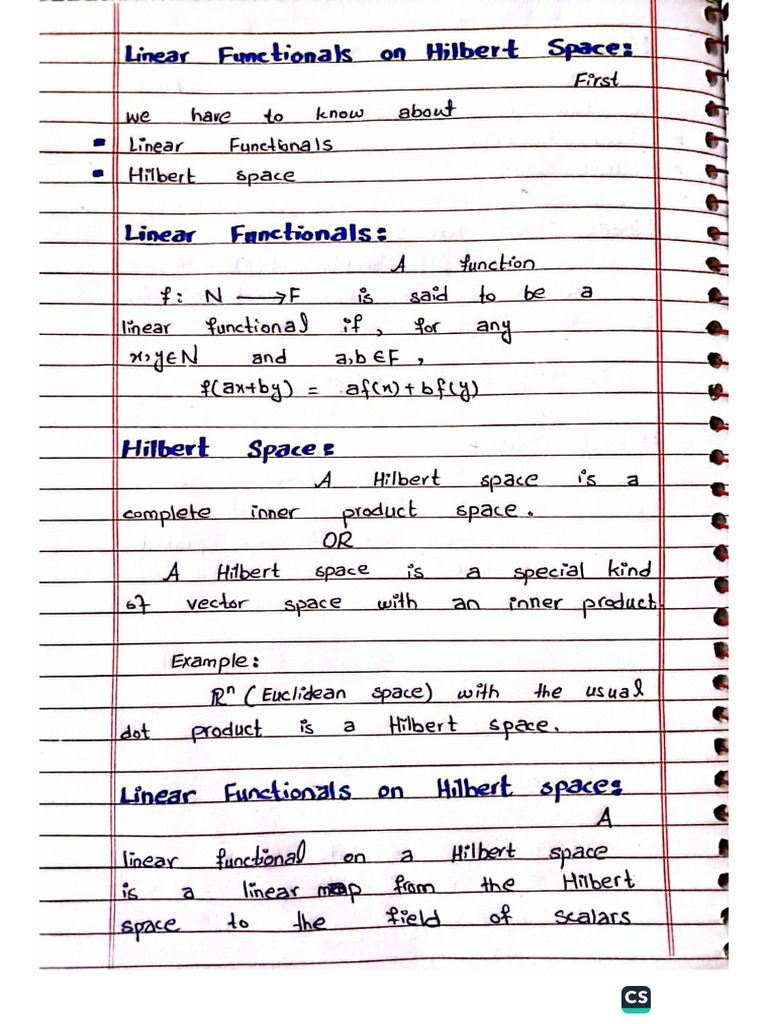 Linear Functionals on Hilbert Space:
First
we have to know about
Linear Functionals
Hilbert space
Linear Functionals:
A function
f: N ⟶ F is said to be a
linear functional if, for any
x, y∈N and a,b∈F,
f(ax+by) = af(x)+bf(y)
Hilbert Space:
A Hilbert space is a
complete inner product space.
OR
A Hilbert space is a special kind
of vector space with an inner product.
Example:
Rⁿ (Euclidean space) with the usual
dot product is a Hilbert space.
Linear Functionals on Hilbert space:
A
linear functional on a Hilbert space
is a linear map from the Hilbert
space to the field of scalars
CS